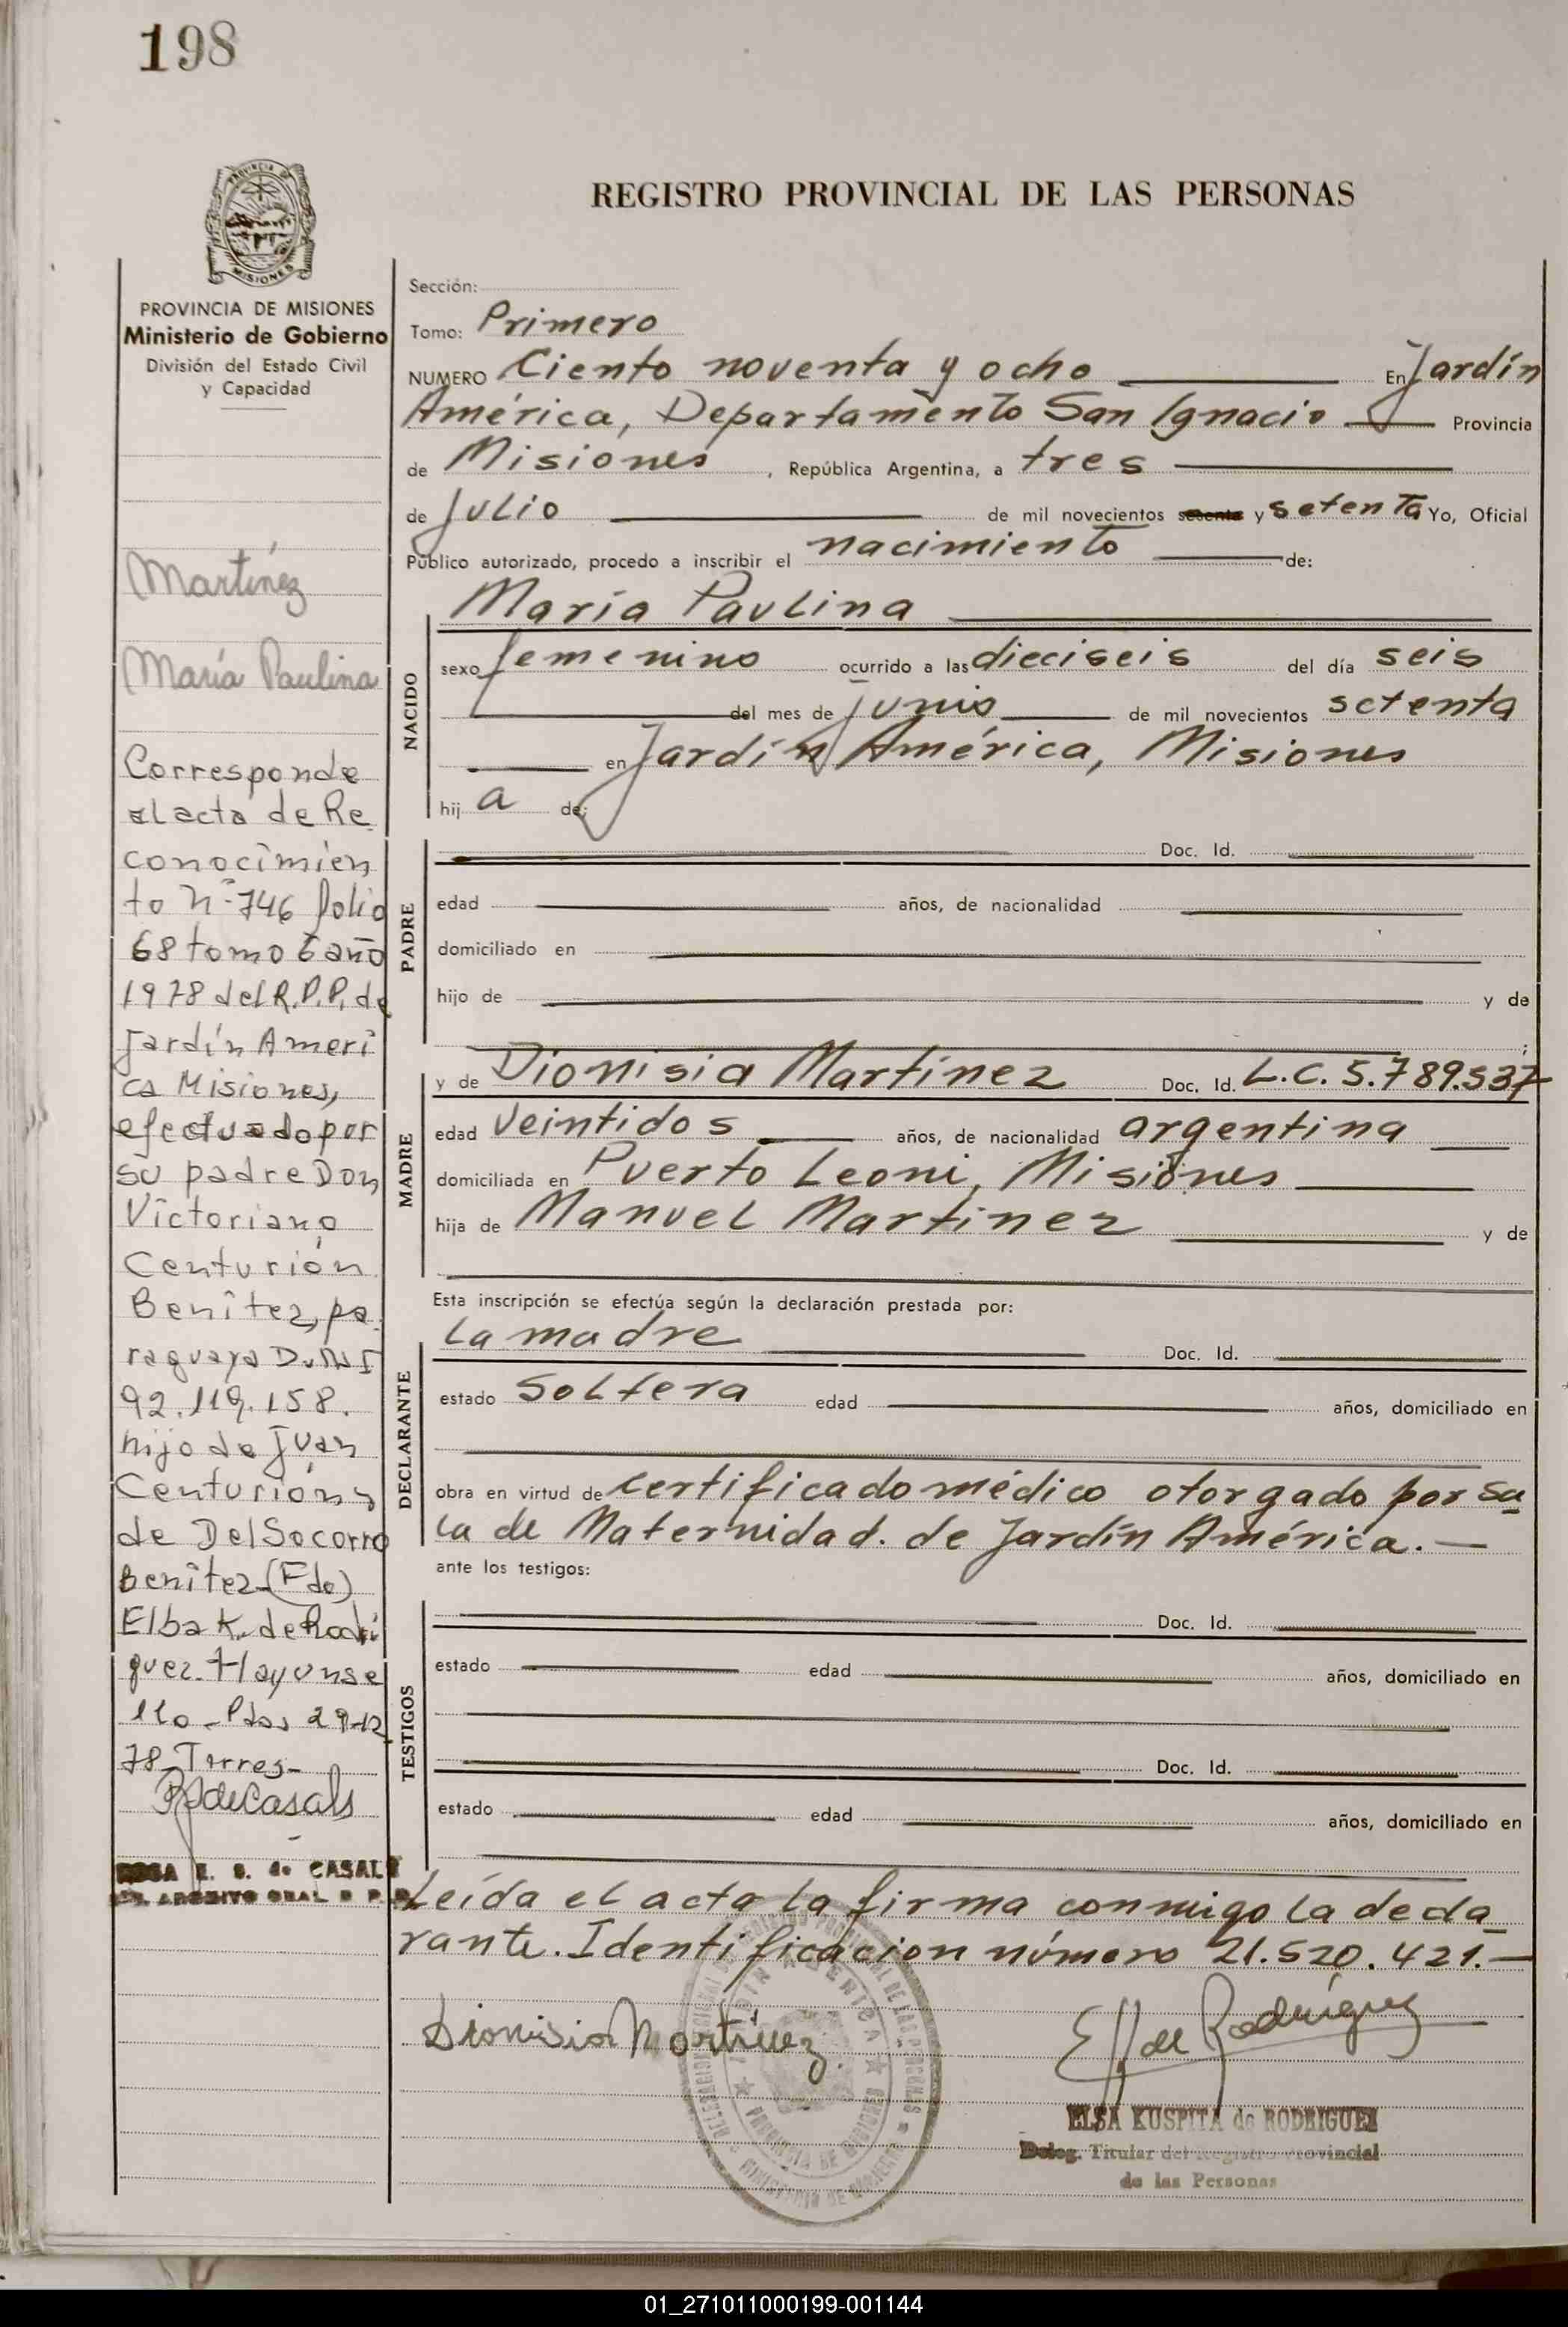 198
PROVINCIA DE MISIONES
Ministerio de Gobierno
División del Estado Civil
y Capacidad
Martínez
María Paulina
Corresponde
al acta de Re
conocimien
to N° 746 folio
68 tomo 5 año
1978 del R.P.P. de
Jardín Améri
ca Misiones,
efectuado por
su padre Don
Victoriano
Centurión
Benítez, pa
raguayo D.N.I
92.119.158.
hijo de Juan
Centurión y
de Del Socorro
Benítez (Fdo)
Elba K. de Rodri
guez. Hay un se
llo - Pdas 29-12
78 Torres-
R de Casals
ROSA E. S. de CASALS
ARCHIVO GRAL R P P
REGISTRO PROVINCIAL DE LAS PERSONAS
Sección:
Tomo: Primero
NUMERO Ciento noventa y ocho En Jardín
América, Departamento San Ignacio Provincia
de Misiones, República Argentina, a tres
de Julio de mil novecientos sesenta y setenta Yo, Oficial
Público autorizado, procedo a inscribir el nacimiento de:
NACIDO
María Paulina
sexo femenino ocurrido a las dieciseis del día seis
del mes de junio de mil novecientos setenta
en Jardín América, Misiones
hij a de:
PADRE
Doc. Id.
edad años, de nacionalidad
domiciliado en
hijo de y de
;
MADRE
y de Dionisia Martínez Doc. Id. L.C. 5.789.537
edad veintidos años, de nacionalidad argentina
domiciliada en Puerto Leoni, Misiones
hija de Manuel Martinez y de
Esta inscripción se efectúa según la declaración prestada por:
DECLARANTE
la madre Doc. Id.
estado soltera edad años, domiciliado en
obra en virtud de certificado médico otorgado por sa
la de Maternidad. de Jardín América.—
ante los testigos:
TESTIGOS
Doc. Id.
estado edad años, domiciliado en
Doc. Id.
estado edad años, domiciliado en
Leída el acta la firma conmigo la decla
rante. Identificacion número 21.520.421.—
Dionisia Martinez
E de Rodríguez
ELSA KUSPITA de RODRIGUEZ
Deleg. Titular del Registro Provincial
de las Personas
01_271011000199-001144